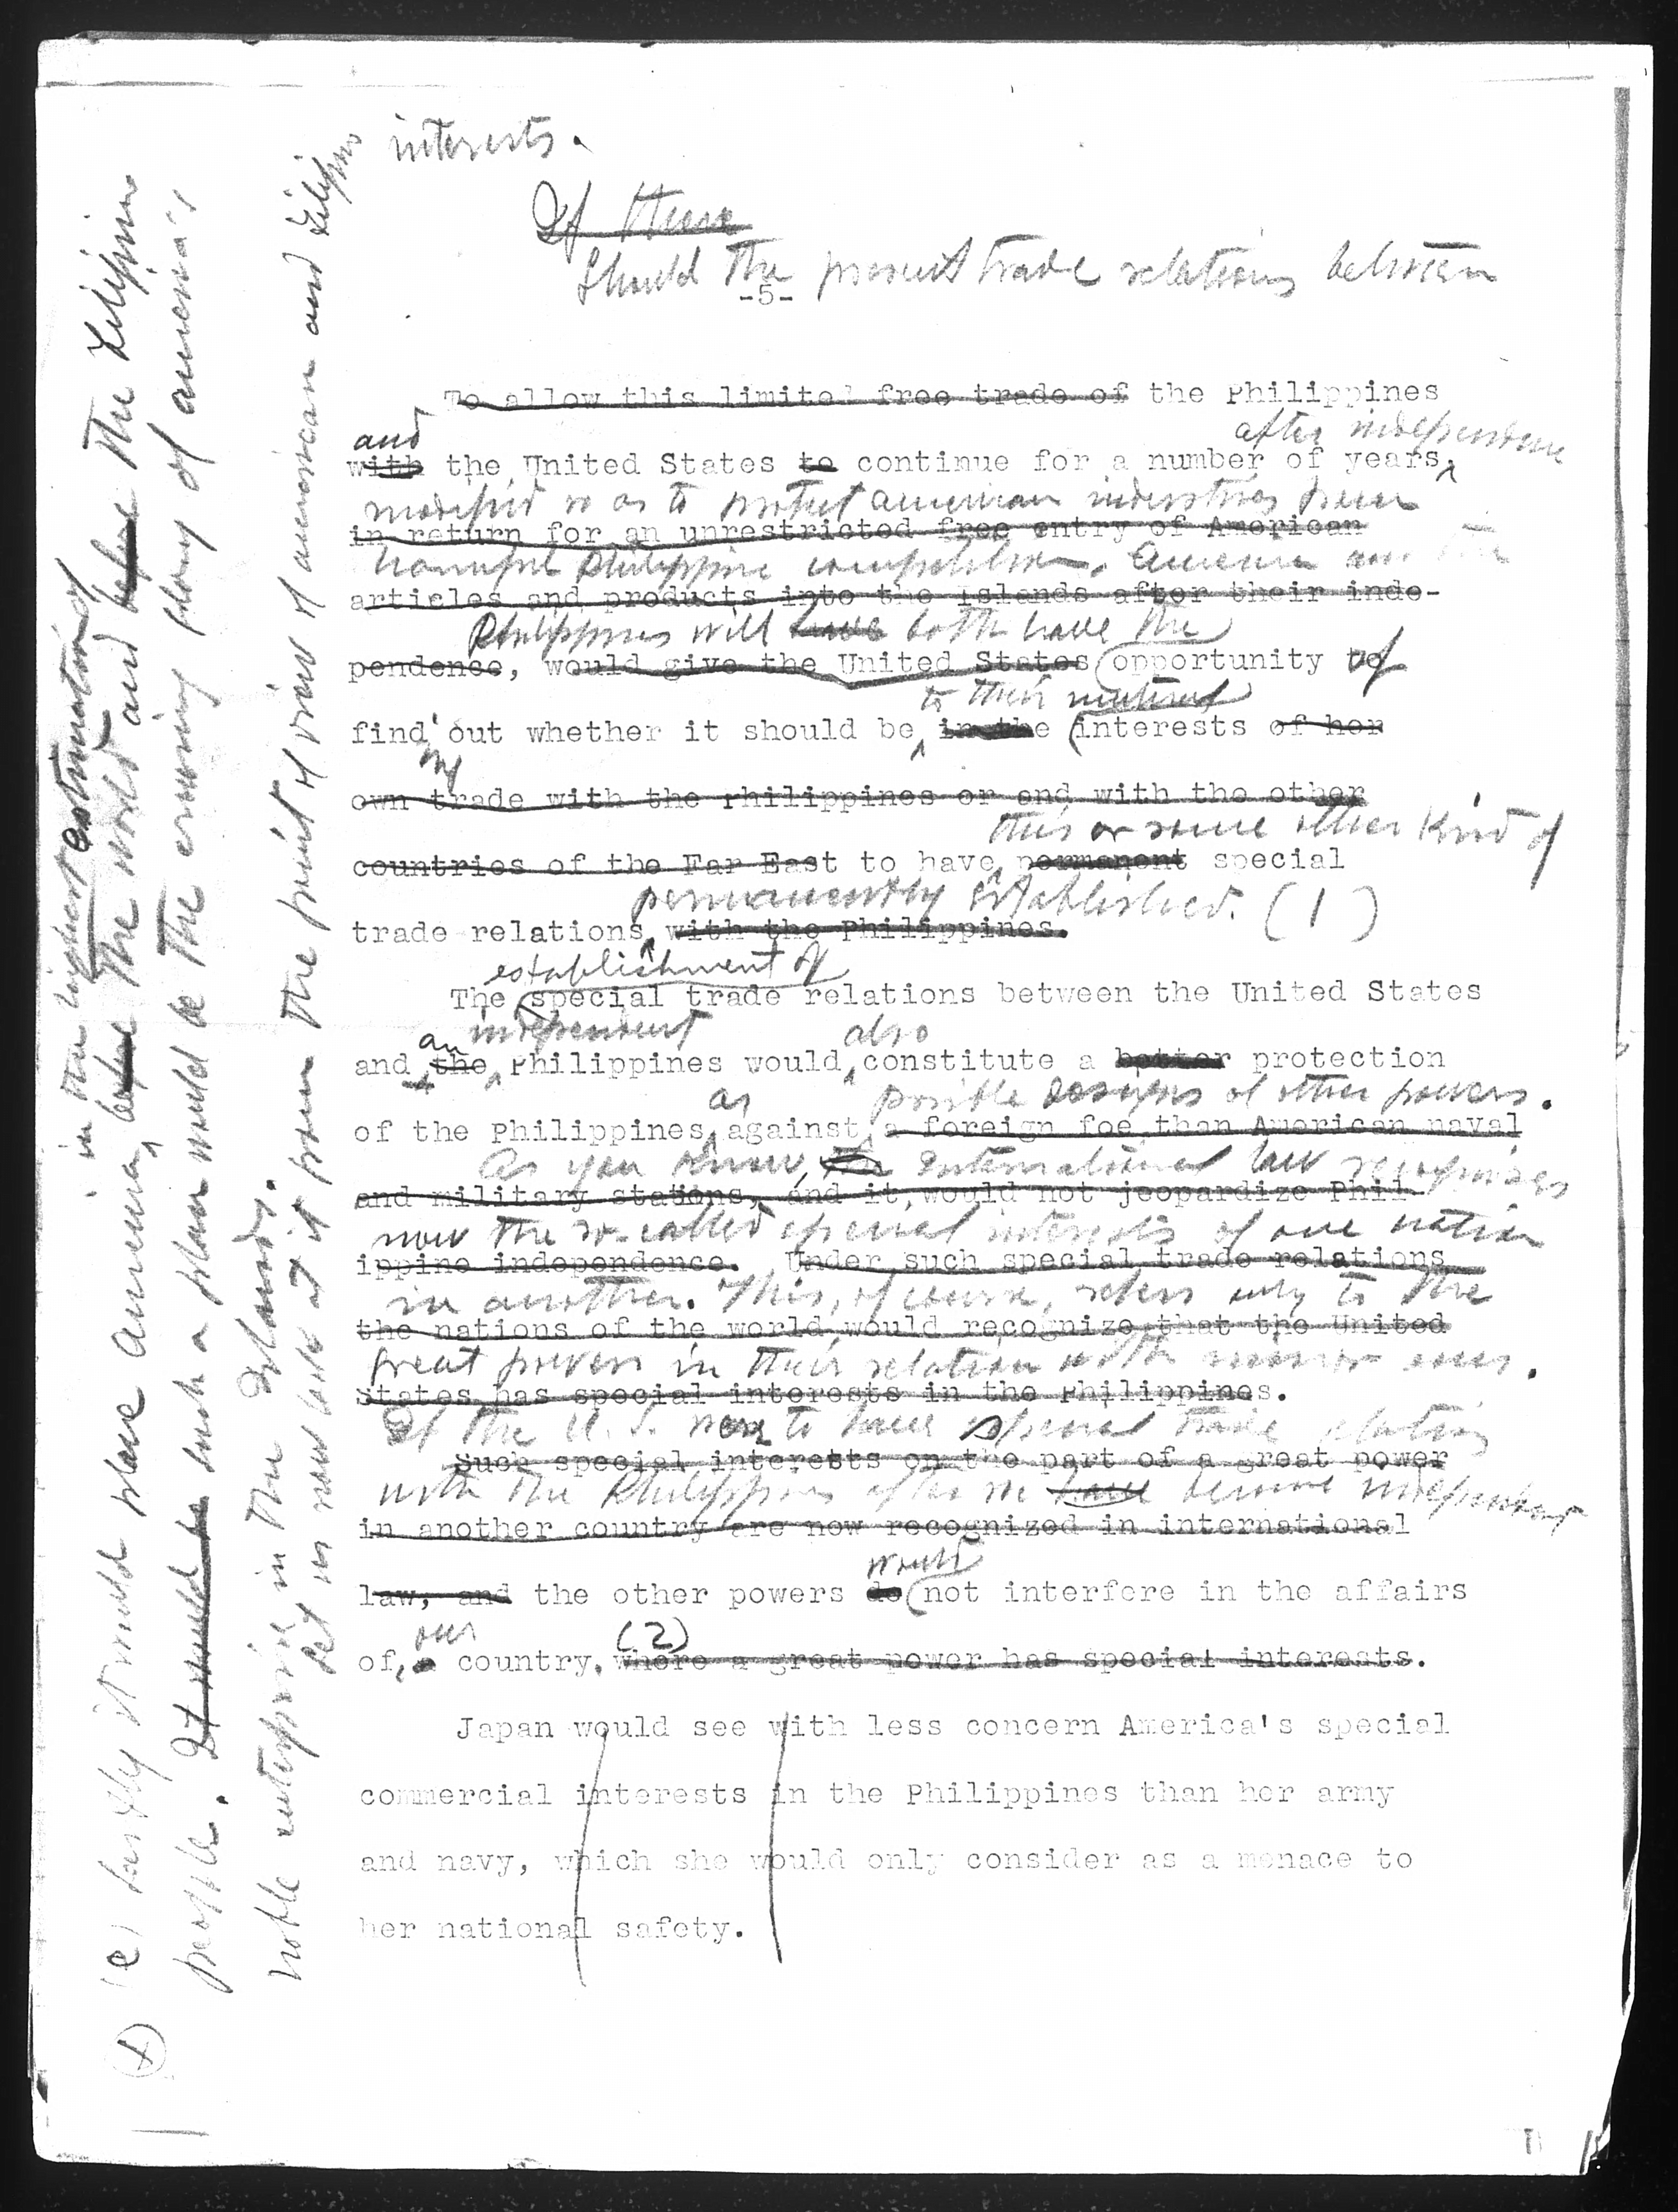 interests.
If these
Should the present trade relations between
-5-
To allow this limited free trade of the Philippines
and after independence
with the United States to continue for a number of years,
modified so as to protect American industries from
in return for an unrestricted free entry of American
harmful Philippine competition, America and the
articles and products into the Islands after their inde-
Philippines will have both have the
pendence, would give the United States opportunity to of
to their mutual
find out whether it should be in the interests of her
ing
own trade with the Philippines or and with the other
this or some other kind of
countries of the Far East to have permanent special
permanently established. (1)
trade relations with the Philippines.
establishment of
The special trade relations between the United States
an independent also
and the Philippines would constitute a better protection
as possible designs of other powers.
of the Philippines against a foreign foe than American naval
As you know, the International law recognizes
and military stations, and it would not jeopardize Phil-
now the so-called special interests of one nation
ippine independence. Under such special trade relations
in another. This, of course, refers only to the
the nations of the world would recognize that the United
great powers in their relation with minor ones.
States has special interests in the Philippines.
If the U. S. were to have special trade relations
Such special interests on the part of a great power
with the Philippines after we have become independent
in another country are now recognized in international
would
law, and the other powers do not interfere in the affairs
our (2)
of a country. where a great power has special interests.
Japan would see with less concern America's special
commercial interests in the Philippines than her army
and navy, which she would only consider as a menace to
her national safety.
in the highest estimation of
(e) Lastly it would place America, before the world and before the Filipino
people. It would be such a plan would be the crowning glory of America's
noble enterprise in the Islands.
Let us now look at it from the point of view of American and Filipino